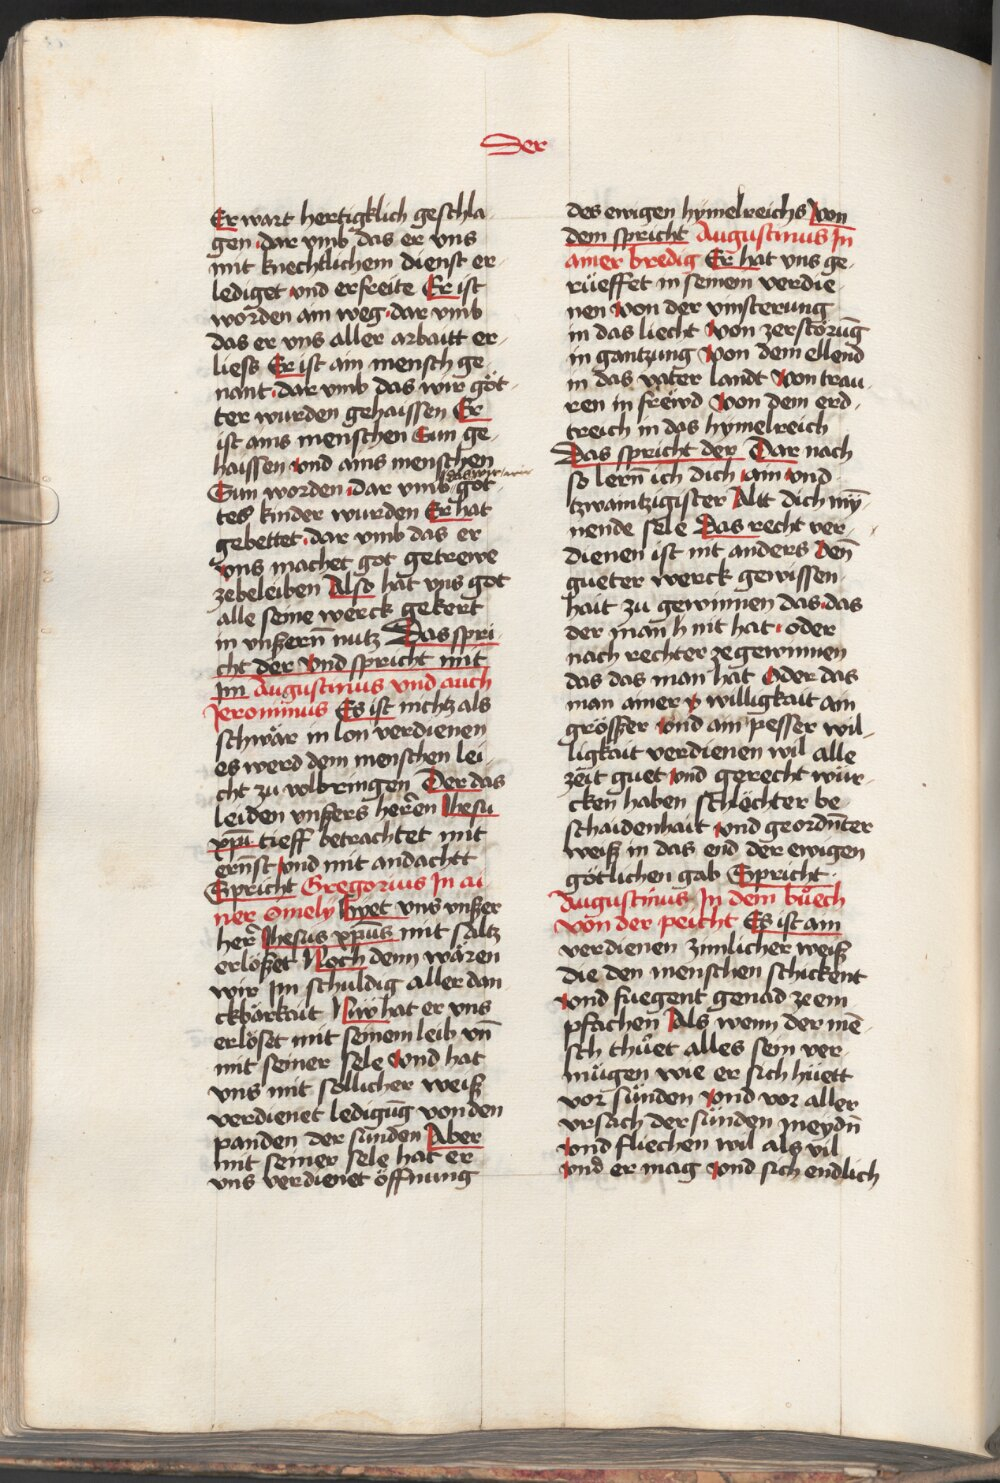 Der
Er wart hertigklich geschla-
gen dar vmb das er vns
mit knechtlichem dienst er-
lediget vnd erfreite Er ist
worden am weg dar vmb
das er vns aller arbaitt er-
liess Er ist ain mensch ge-
nant dar vmb das wir göt-
ter wurden gehaissen Er
ist ains menschen Sun ge-
haissen vnd ains menschen
Sun worden dar vmb das wir got-
tes kinder wurden Er hat
gebettet dar vmb das er
vns machet got getrewe
zebeleiben Also hat vns got
alle seine werck gekert
in vnßern̄ nutz Das spri-
cht der vnd spricht mit
Im Augustinus vnd auch
Jeronimus Es ist nichtz als
schwär in lon verdienen
es werd dem menschen lei-
cht zu volbringen Der das
leiden vnßers herren Jhesu
xp̄i tieff betrachtet mit
ernst vnd mit andachtt
Spricht Gregorius In ai-
ner omely Hyet vns vnßer
her Jhesus xp̄us mit saltz
erlößet Noch denn wären
wir Im schuldig aller dan-
ckbärkait Nuͤ hat er vns
erlöset mit seinem leib vn̄
mit seiner sele vnd hat
vns mit söllicher weiß
verdienet ledigūg von den
panden der sünden Aber
mit seiner sele hat er
vns verdienet öffnung
des ewigen hymelreichs Von
dem spricht Augustinus In
ainer bredig Er hat vns ge-
rüeffet in seinem verdie-
nen von der vinsterung
in das liecht von zerstörūg
in gantzung von dem ellend
in das vater landt von trau-
ren in freẅd von dem erd-
treich in das hymelreich
Das spricht der Dar nach
so lern̄ ich dich ain vnd
tzwaintzigister Altt dich mȳ-
nende sele Das recht ver-
dienen ist nit anders Den̄
gueter werck gewissen-
hait zu gewinnen das das
der man h nit hat oder
nach rechter ze gewinnen
das das man hat Oder das
man ainer willigkait ain
grösßer vnd ain pesser wil-
ligkait verdienen wil alle
zeit guet vnd gerecht wür-
cken haben schlechter be-
schaidenhait vnd geordn̄ter
weiß in das end der ewigen
götlichen gab Spricht
Augustinus In dem buͦech
von der peicht Es ist ain
verdienen zimlicher weiß
die den menschen schickent
vnd fuegent genad ze em-
pfachen Als wenn der mē-
sch thuͦet alles sein ver-
mügen wie er sich hüett
vor sünden vnd vor aller
vrsach der sünden meydn̄
vnd fliechen wil als vil
vnd er mag vnd sich endlich